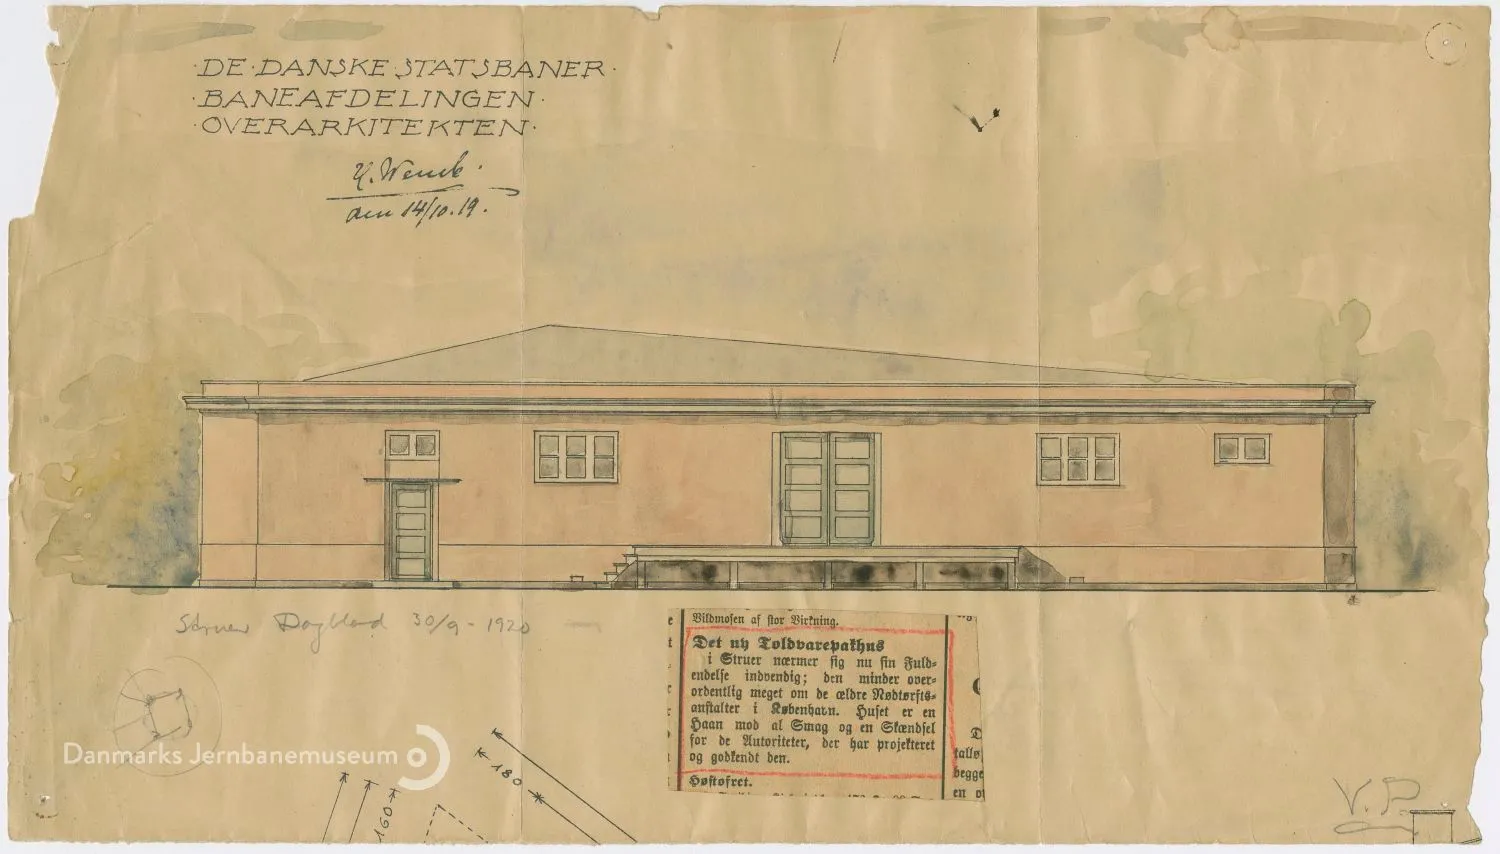 ·DE·DANSKE·STATSBANER·
·BANEAFDELINGEN·
·OVERARKITEKTEN·
H. Wenck.
den 14/10.19.
Struer Dagblad 30/9 - 1920
Vildmosen af stor Virkning.
Det ny Toldvarepakhus
i Struer nærmer sig nu sin Fuld-
endelse indvendig; den minder over-
ordentlig meget om de ældre Nødtørfts-
anstalter i København. Huset er en
Haan mod al Smag og en Skændsel
for de Autoriteter, der har projekteret
og godkendt den.
Høstofret.
talls
begge
en o
Danmarks Jernbanemuseum
180
160
V.P.